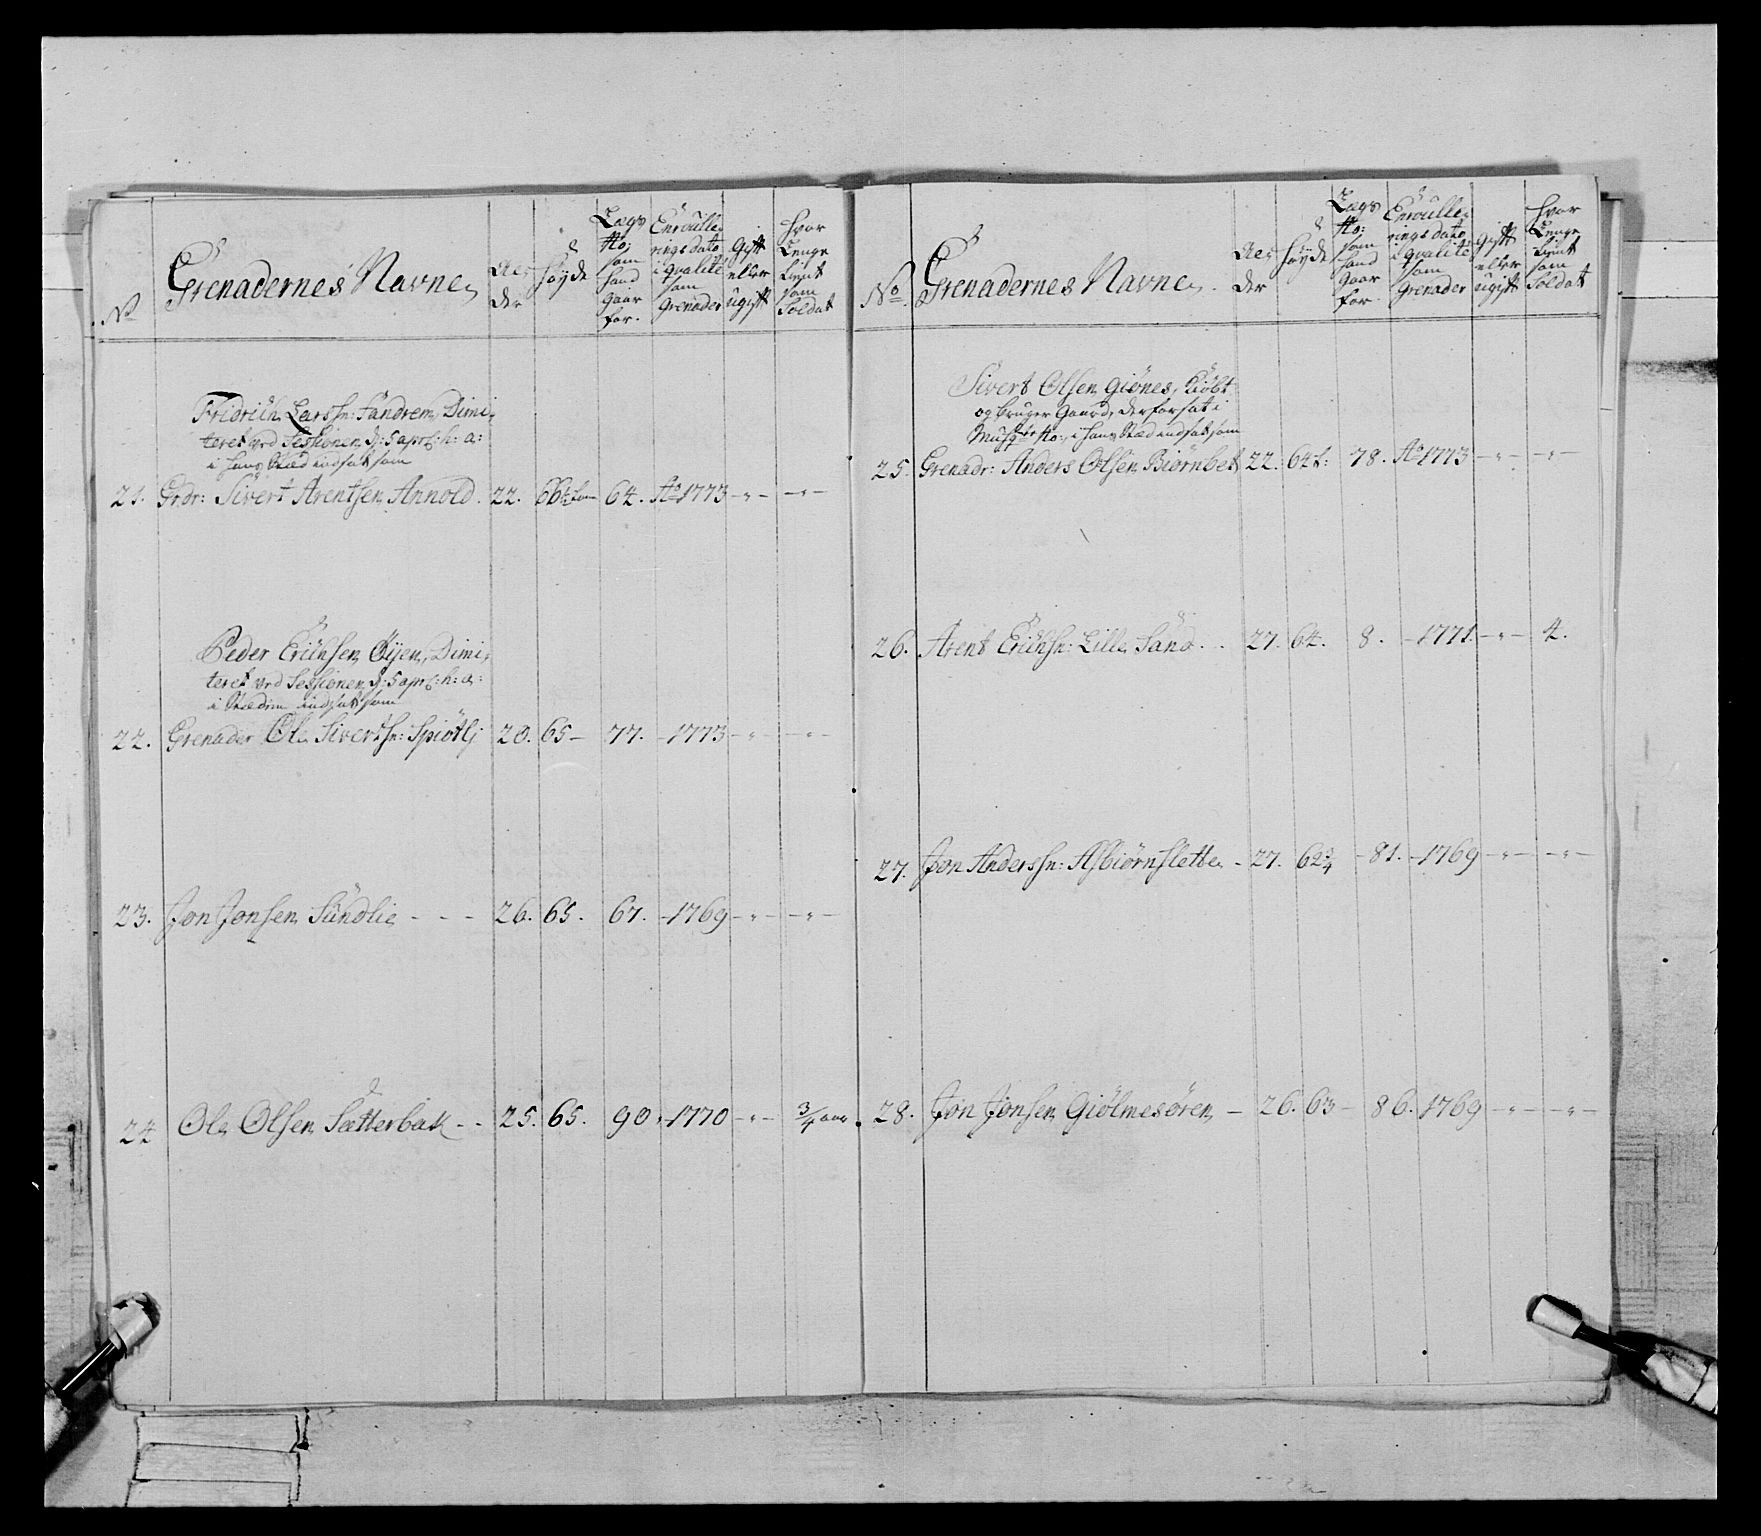 No
Grenadernes Navne
Al:
der
Høyde
Lægs
No:
som
hand
gaar
for.
Enroulle,
rings dato
i qvalité
som
Grenader
Gift
eller
ugift
hvor
Længe
tient
som
Soldat
Fridrich Larssn: Sandrem, Dimi,
teret ved Sessionen d: 5 apr: h: a:
i hans Stæd indsat som
21. Grdr: Sivert Arentsen Arnold. 22. 64. Ao 1773 - " - - " -
Peder Erichsen Øyen, Dimi,
teret ved Sessionen d: 5 apr: h: a:
i Stæden indsat som
22. Grenader Ole Sivertsn: 20. 65 - 77. - 1773 - " - - " -
23. Jon Jonsen Sundlie - - - 26. 65. 67. - 1769 - " - - " -
24 Ole Olsen Sætterbak - - 25. 65. 90. - 1770 - " - 3/4 aar.
No.
Grenadernes Navne.
Al:
der
Høyde
Lægs
No:
som
hand
gaar
for.
Enroulle,
rings dato
i qvalité
som
Grenader
Gift
eller
ugift
hvor
Længe
tient
som
Soldat
Sivert Olsen Giønes, Kiøbt
og bruger Gaard, derfor sat i
No:, i hans Stæd indsat som
25. Grenadr: Anders Olsen Biørnbet 22. 78. Ao 1773 - " - - " -
26. Arent Erichsn: Lille Sand. . 27. 64. 8. - 1771. - " - 4.
27. Jon Anderssn: Asbiørnslette - 27. 62 3/4 - 81. - 1769 - " - - " -
28. Jon Jonsen Giølmesøren - 26. 63 - 86. 1769 - " - - " -